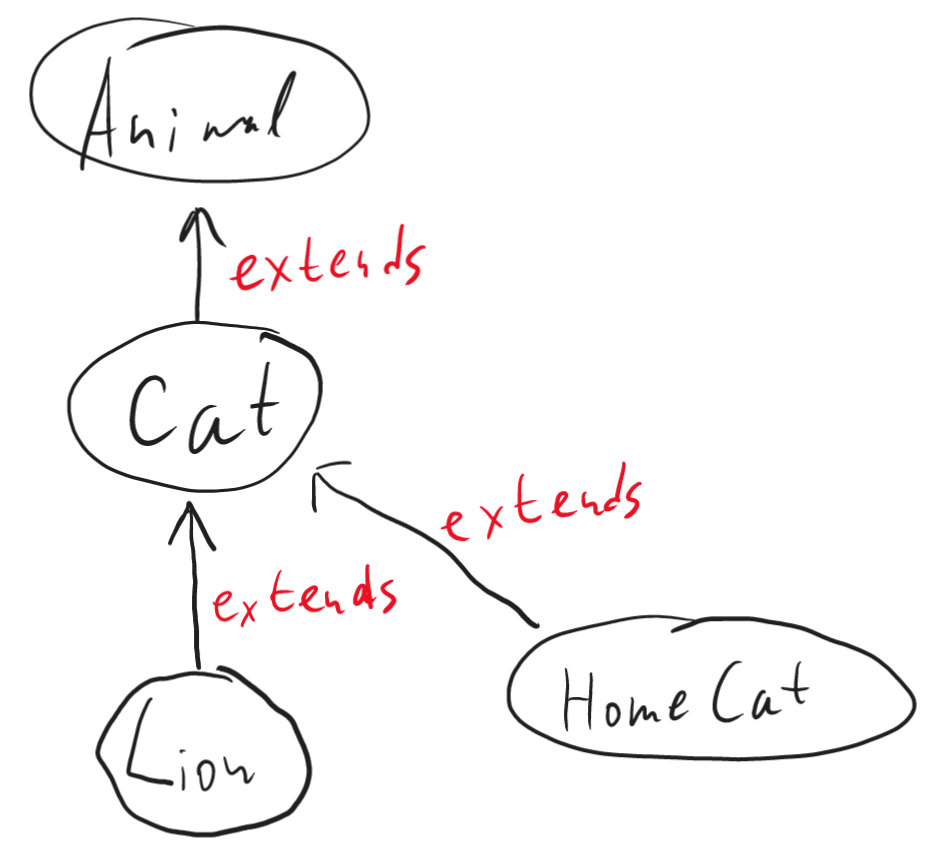 Animal
extends
Cat
extends
extends
Home Cat
Lion